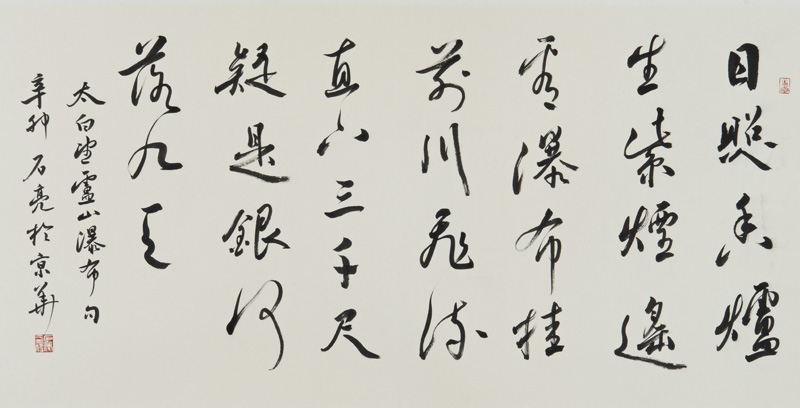 日照香爐
生紫煙遙
看瀑布挂
前川飛流
直下三千尺
疑是銀河
落九天
太白望廬山瀑布句
辛卯 石亮於京華